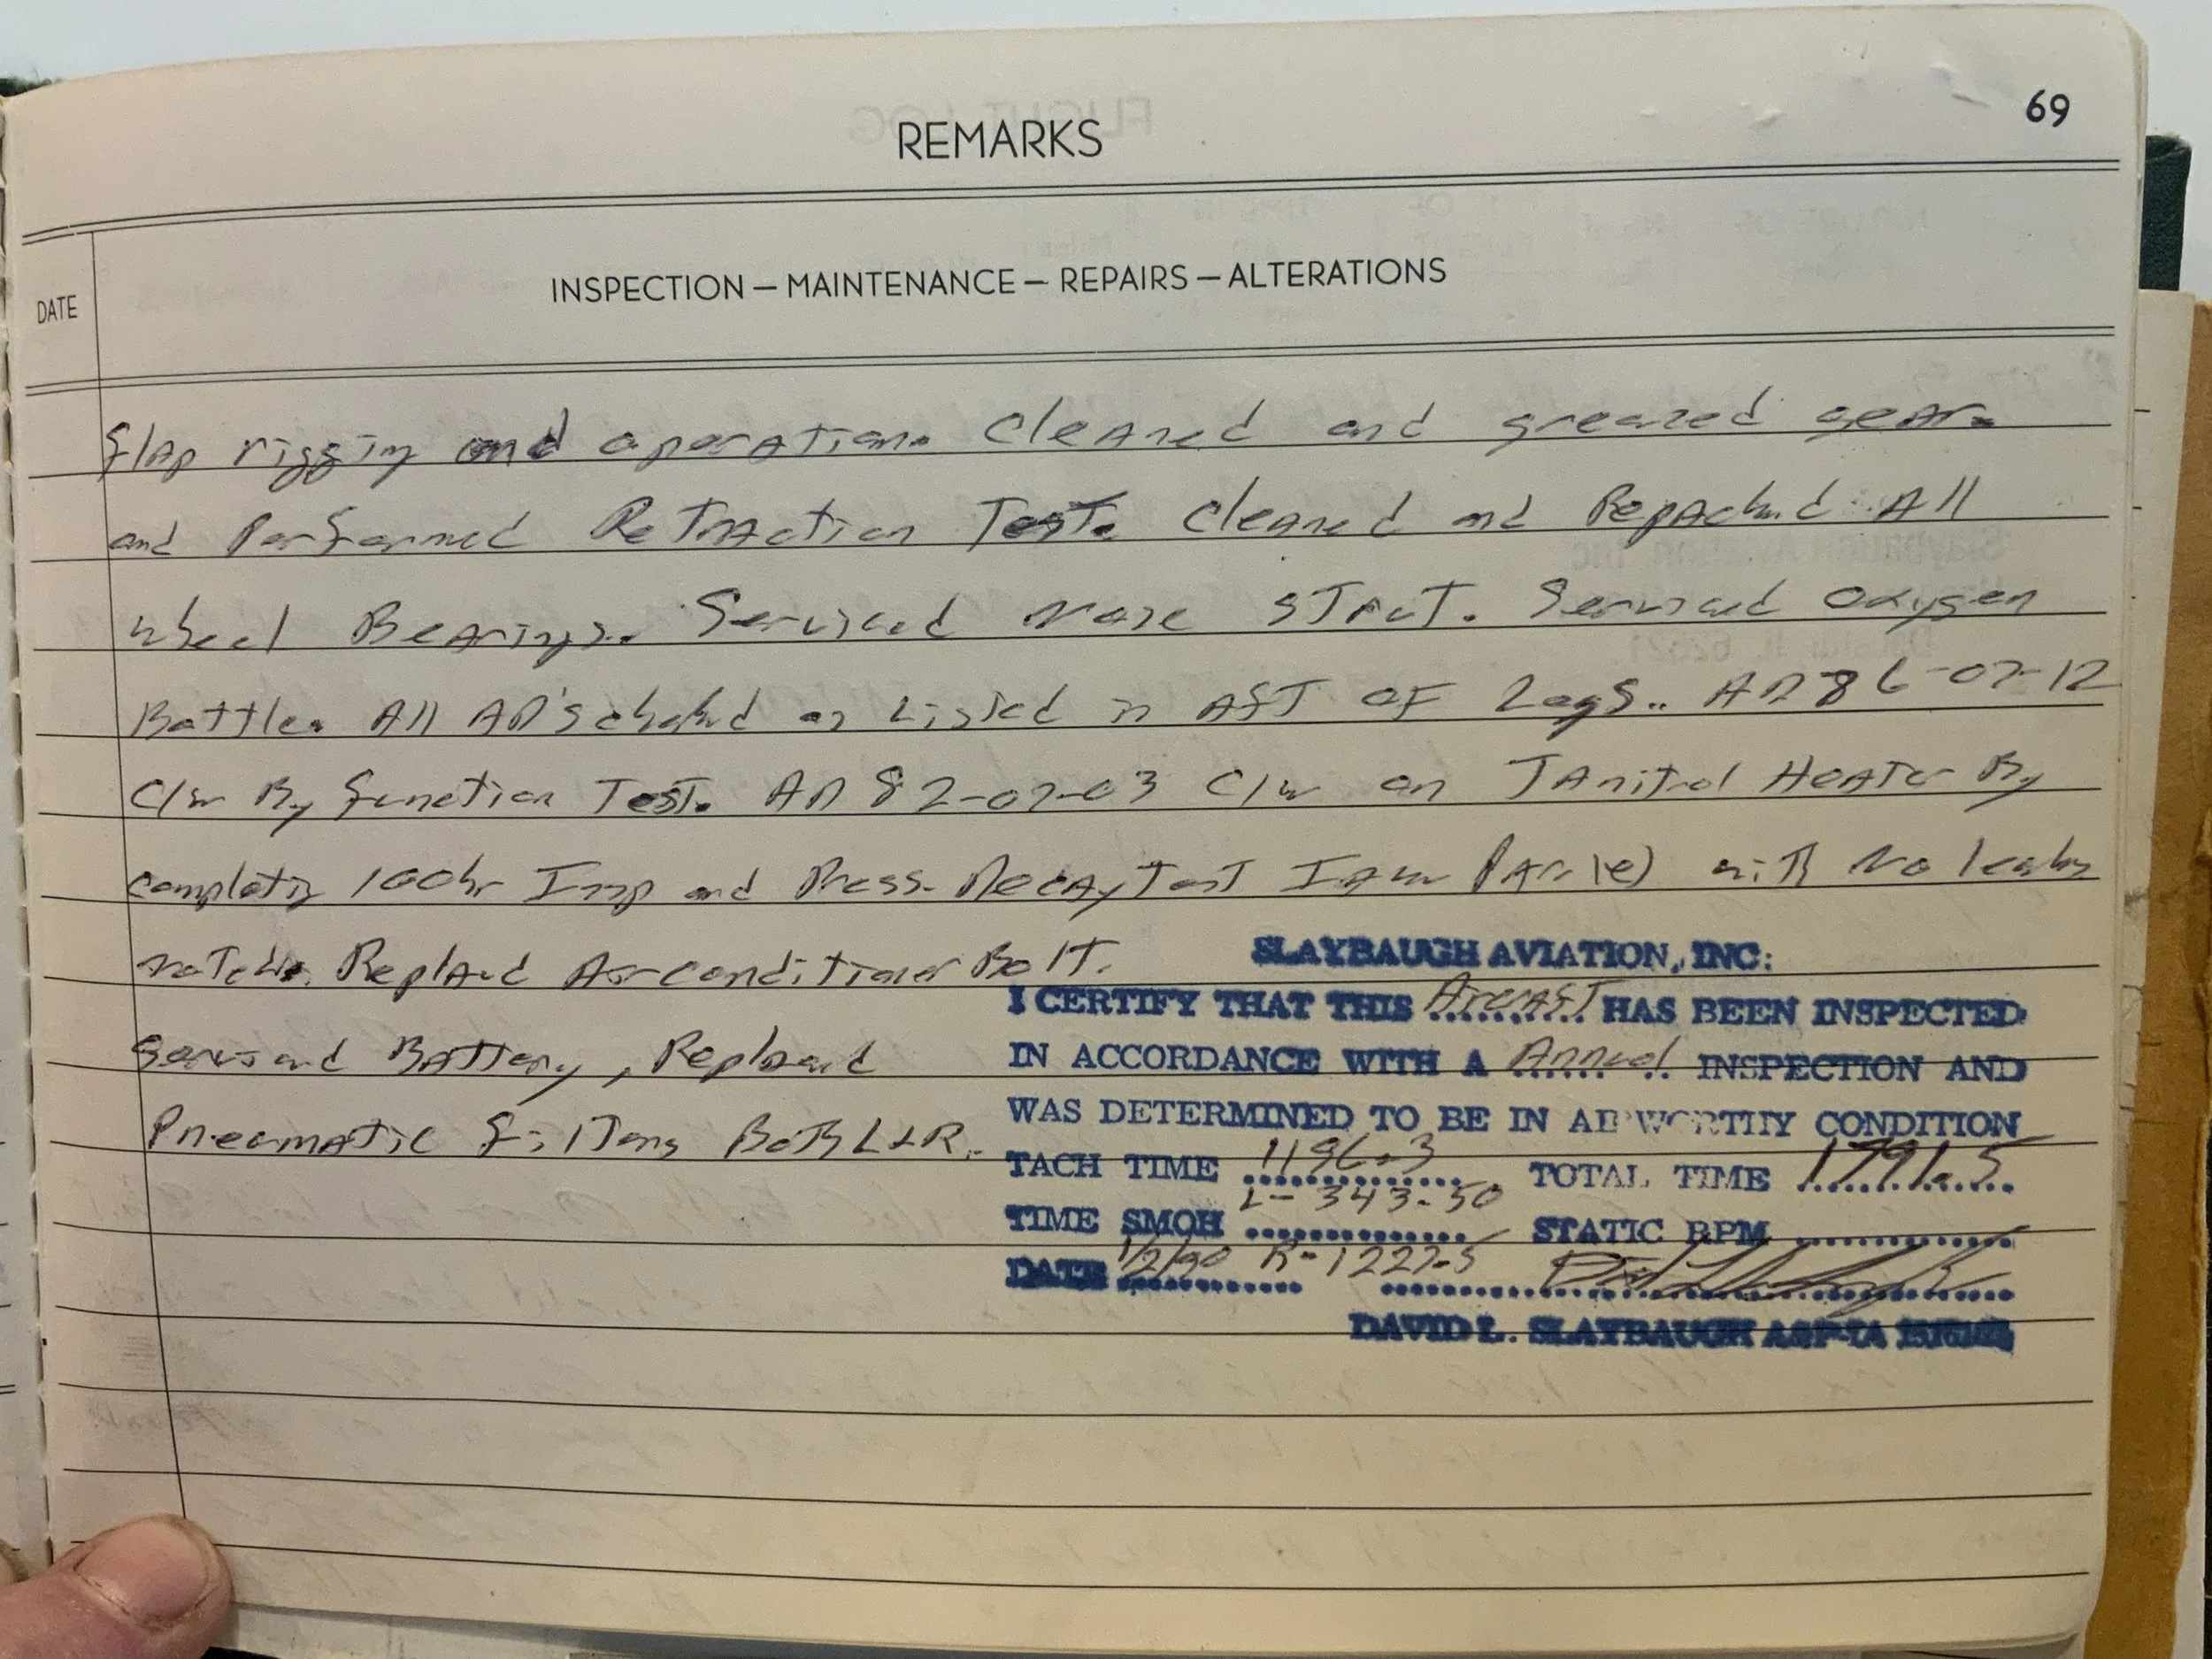 69
REMARKS
DATE
INSPECTION — MAINTENANCE — REPAIRS — ALTERATIONS
flap rigging and operation. Cleaned and greased gear
and Performed Retraction Test. Cleaned and Repacked All
wheel Bearings. Serviced Nose STruT. Serviced Oxygen
Bottle. All AD's checked as Listed in AfT OF Logs.. AD 86-07-12
C/W By function Test. AD 82-07-03 C/W on JAnitrol Heater By
completing 100hr Insp and Press. Decay Test IAW PAr (e) with No leaks
noted. Replaced Airconditioner Belt.
Serviced Battery, Replaced
Pneumatic filters Both L+R.
SLAYBAUGH AVIATION, INC:
I CERTIFY THAT THIS Aircraft HAS BEEN INSPECTED
IN ACCORDANCE WITH A Annual INSPECTION AND
WAS DETERMINED TO BE IN AIRWORTHY CONDITION
TACH TIME 1196.3 TOTAL TIME 1791.5
TIME SMOH L- 343.50 STATIC RPM
DATE 1/2/90 R-1227.5
DAVID L. SLAYBAUGH A&P-IA